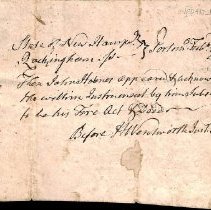 State of New Hamp
Rockingham ss
Then John appeared & acknow
the within Instrument by him Subs
to be his Free Act & Deed
Before H Wentworth Just